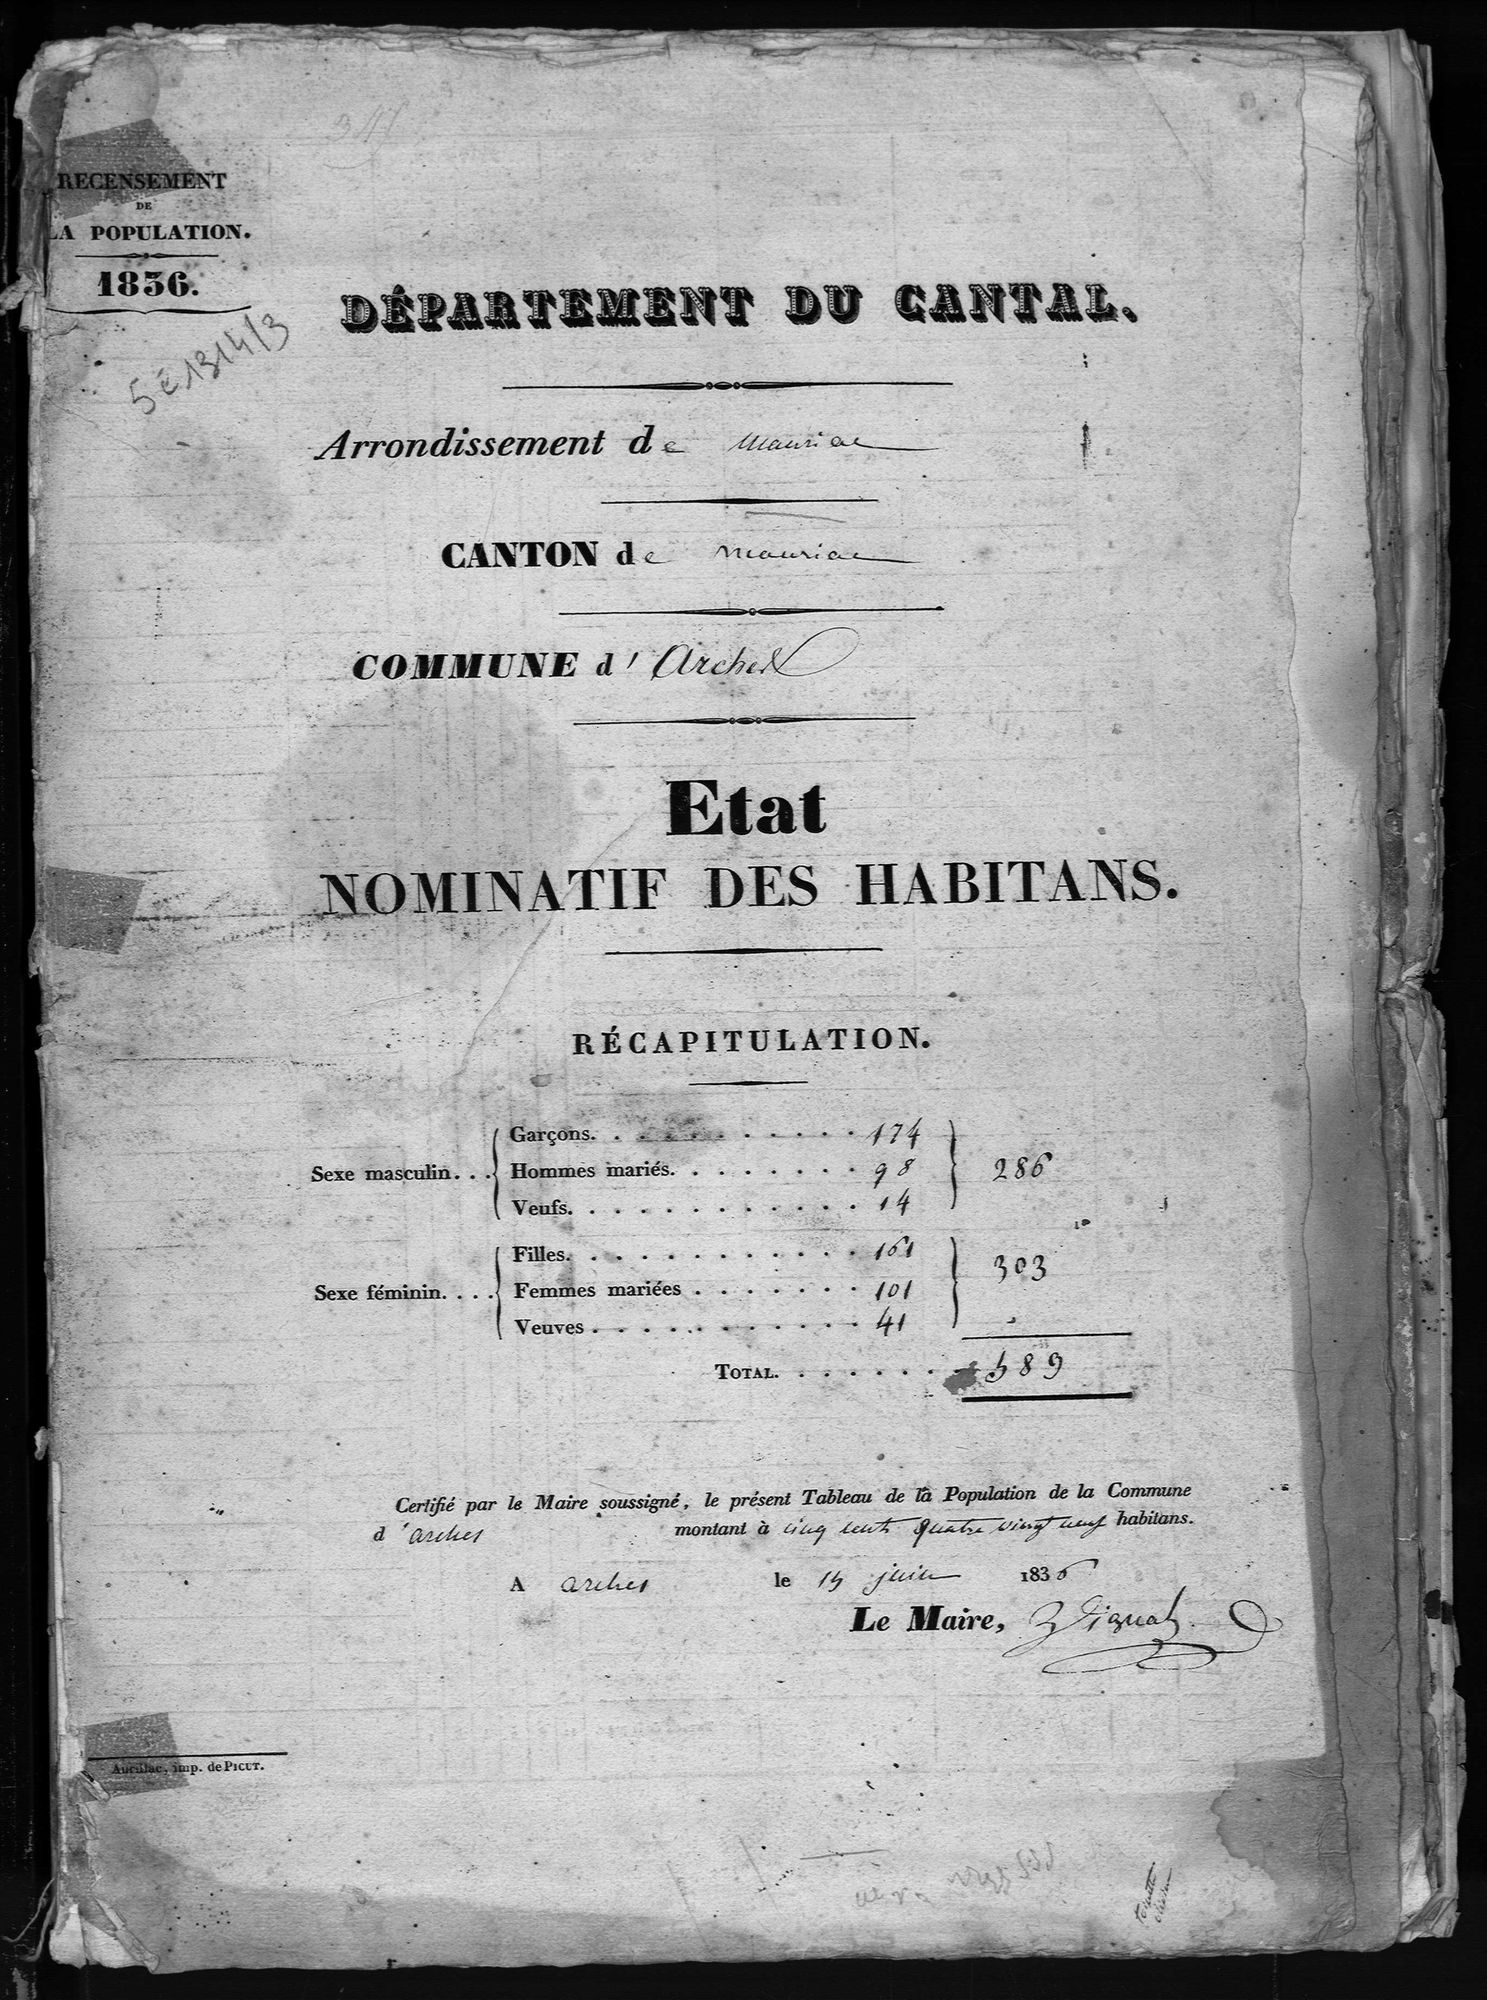 RECENSEMENT
DE
LA POPULATION.
1836.
5 E 1314/3
DÉPARTEMENT DU CANTAL.
Arrondissement de Mauriac
CANTON de mauriac
COMMUNE d' Arches
Etat
NOMINATIF DES HABITANS.
RÉCAPITULATION.
Sexe masculin...
Garçons. . . . . . . . . . . 174
Hommes mariés. . . . . . . . 98
Veufs. . . . . . . . . . . . 14
286
Sexe féminin....
Filles. . . . . . . . . . . . 161
Femmes mariées . . . . . . . 101
Veuves . . . . . . . . . . . 41
303
TOTAL. . . . . . . . 589
Certifié par le Maire soussigné, le présent Tableau de la Population de la Commune
d' arches montant à cinq cents quatre vingt neuf habitans.
A arches le 15 juin 1836
Le Maire, Vignal
Aurillac, imp. de PICUT.